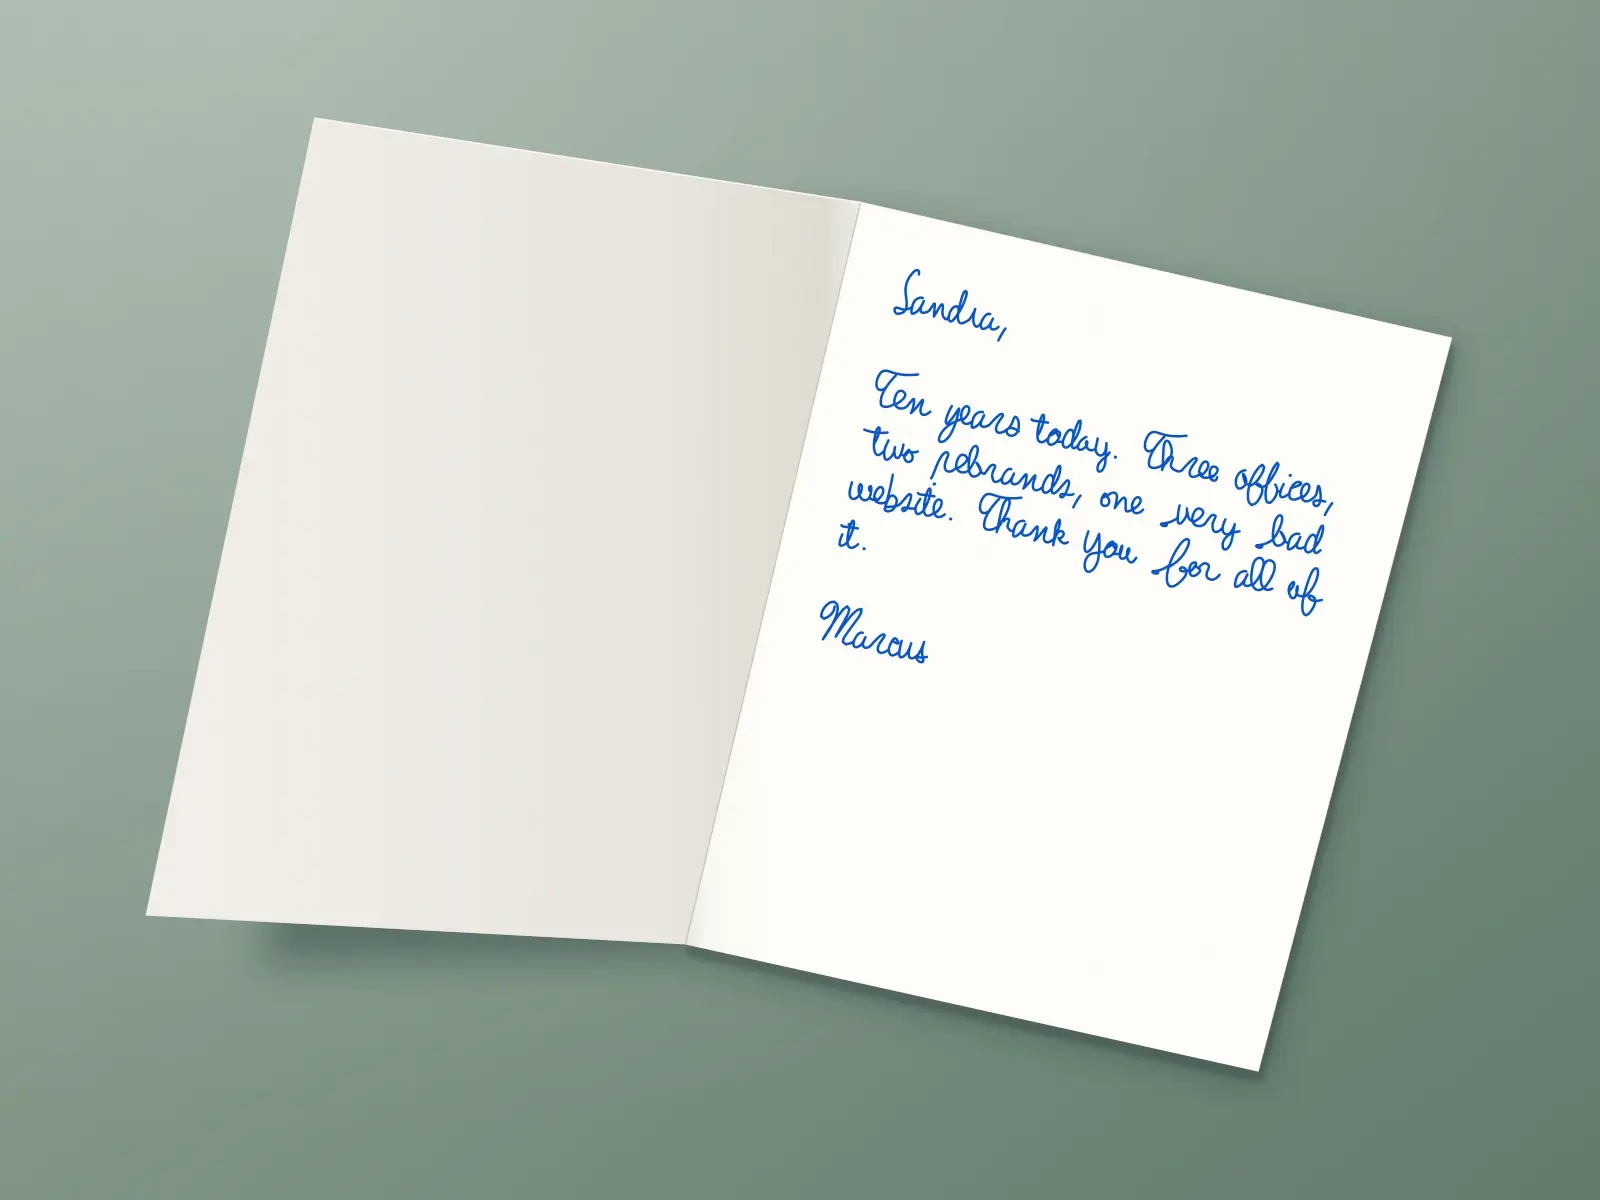 Sandra,
Ten years today. Three offices,
two rebrands, one very bad
website. Thank you for all of
it.
Marcus